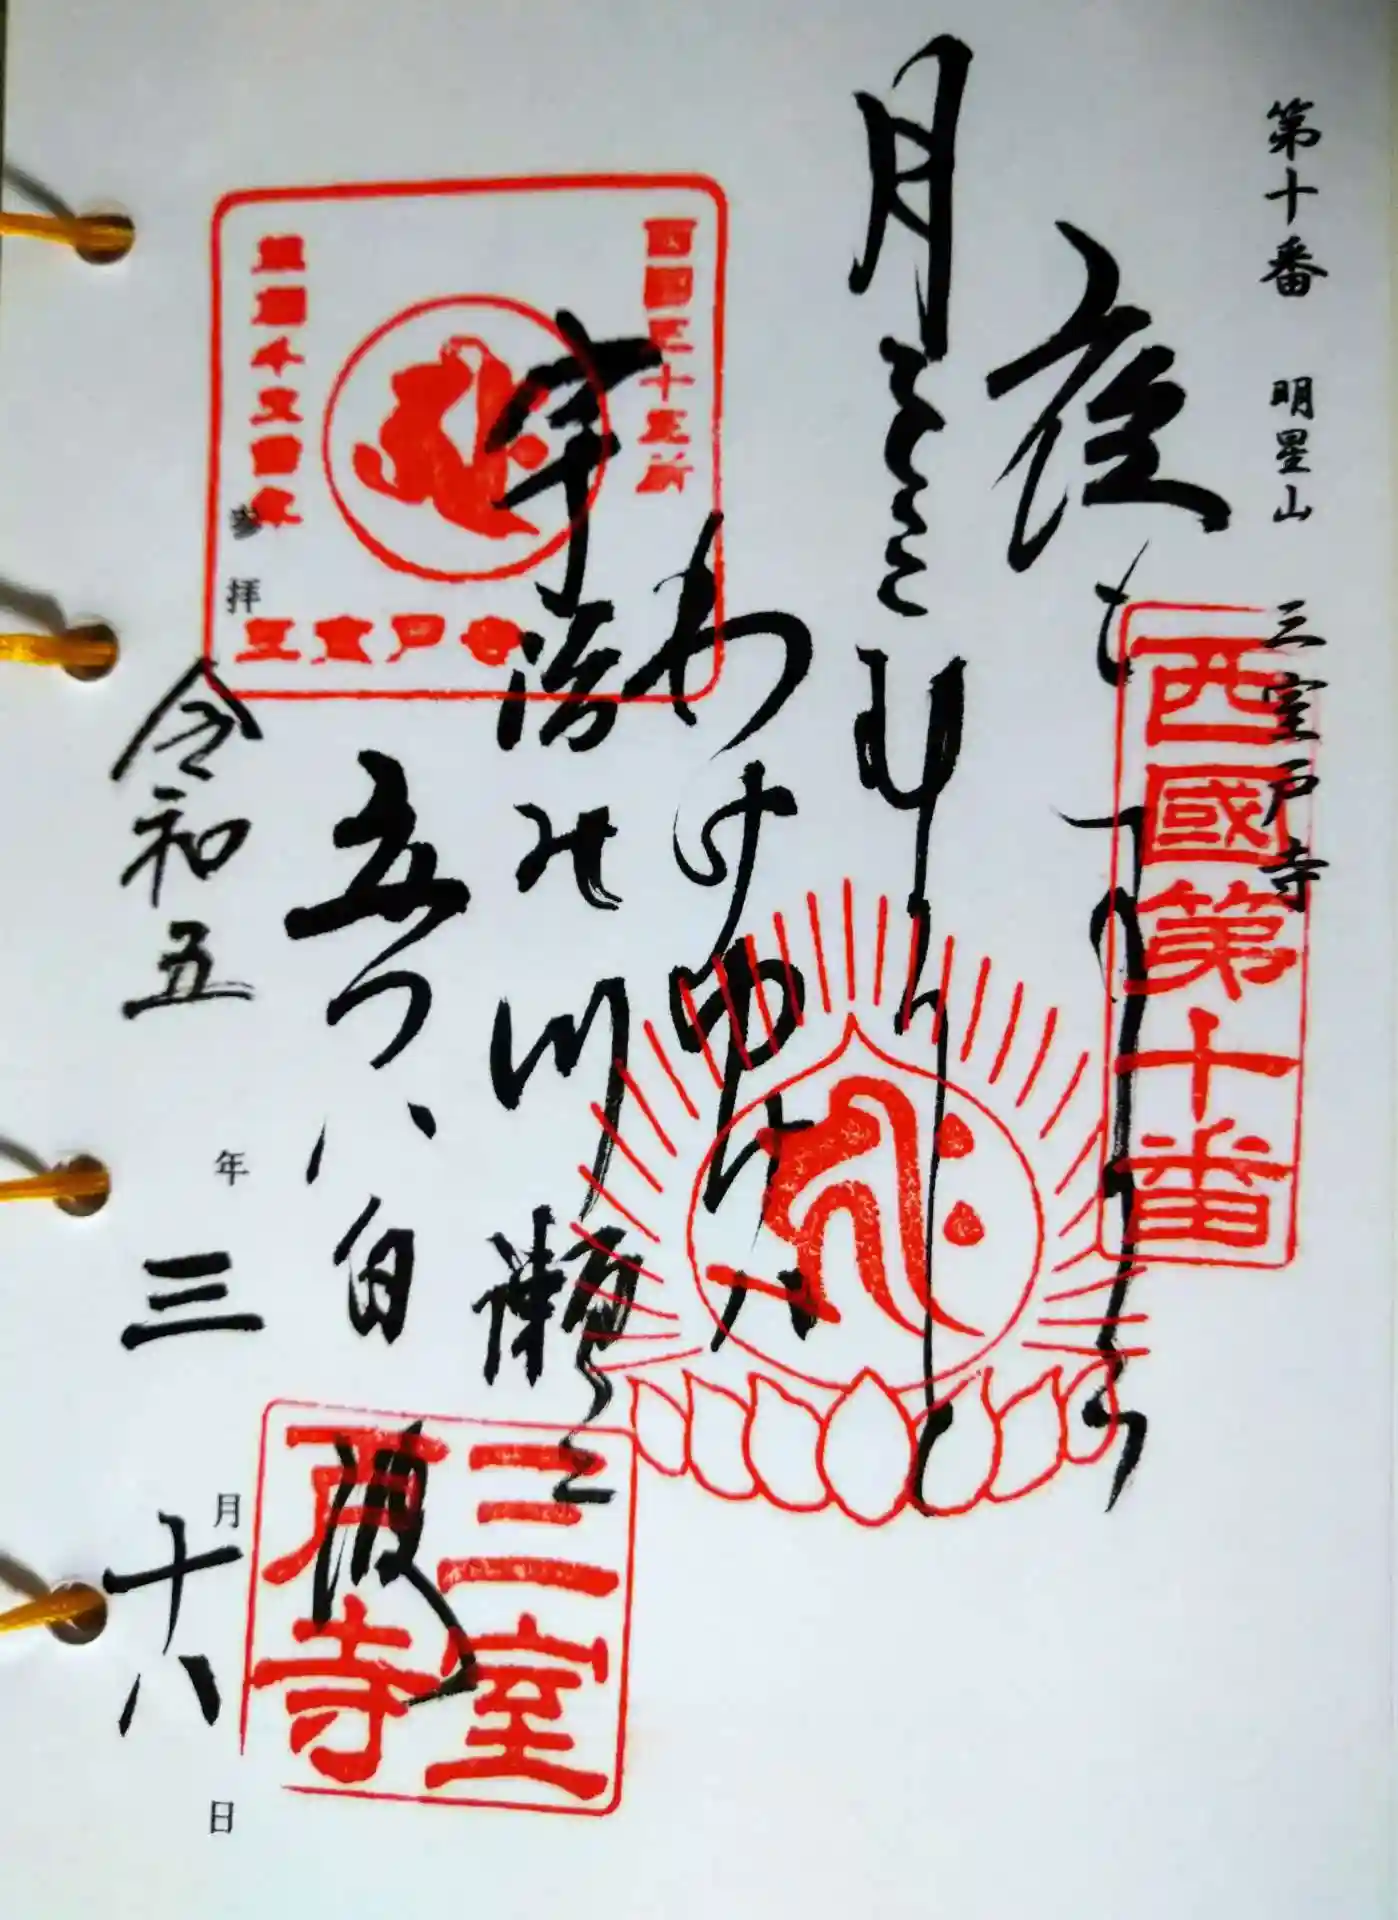 第十番 明星山 三室戸寺
西國第十番
夜もすから
月をみむろと
わけゆけハ
宇治の川瀬に
立つハ白波
西国三十三所
草創千三百年
三室戸寺
三室
戸寺
参拝
令和五年三月十八日